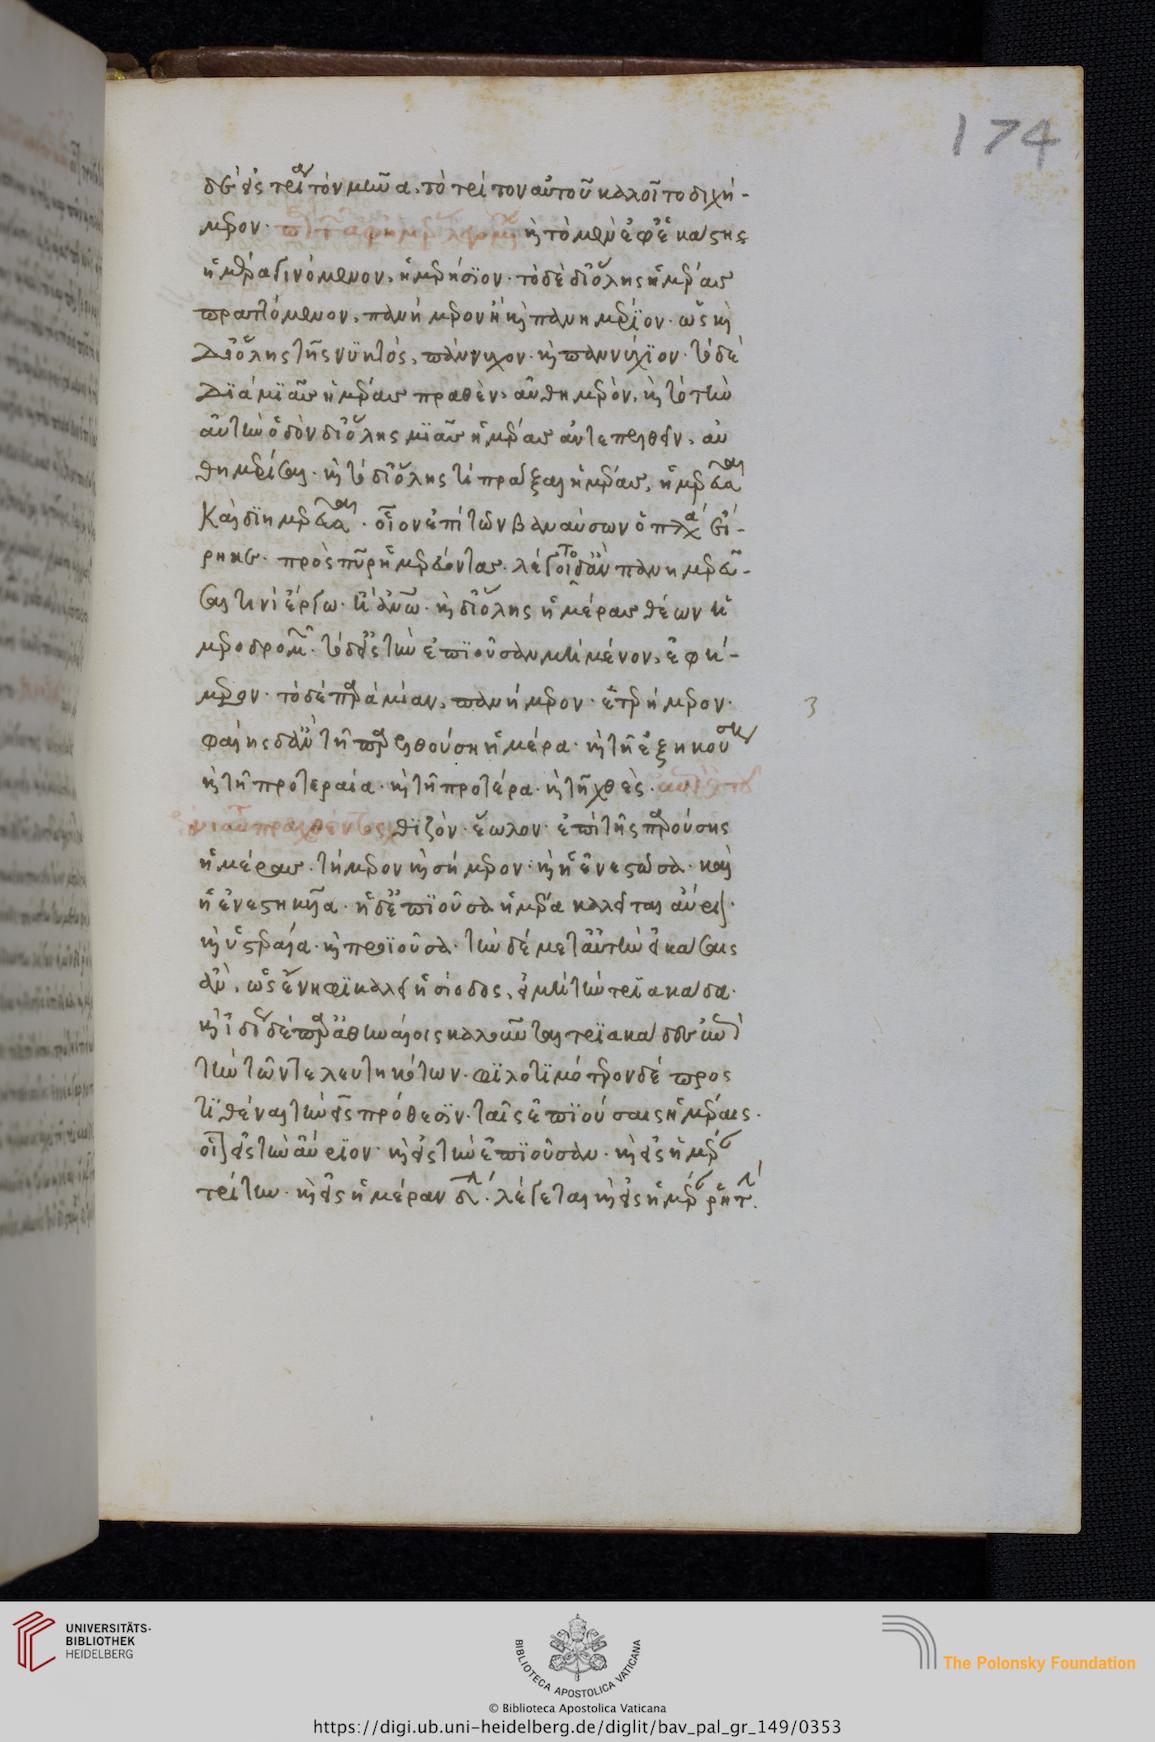 174
δὲ εἰς τρία τὸν μῆνα, τὸ τρίτον αὐτοῦ καλοῖτο διχή-
μερον. καὶ τὸ μὲν ἐφ' ἑκάστης
ἡμέρα γινόμενον, ἡμερήσϊον. τὸ δὲ δι' ὅλης ἡμέρας
πραττόμενον, πανήμερον ἢ καὶ πανημέρϊον. ὡς καὶ
Δι' ὅλης τῆς νϋκτὸς, πάννυχον. καὶ παννύχϊον. τὸ δὲ
Δϊὰ μϊᾶς ἡμέρας πραχθὲν, αὐθημερόν. καὶ τὸ τὴν
αὐτὴν ὁδὸν δι' ὅλης μϊᾶς ἡμέρας ἀντεπελθεῖν, αὐ
θημερίσαι. καὶ τὸ δι' ὅλης τὶ πρᾶξαι ἡμέρας, ἡμερεῦσαι
Καὶ διημερεῦσαι. οἷον ἐπὶ τῶν βαναύσων ὁ πλά εἴ-
ρηκε. πρὸς πῦρ ἡμερεύοντας. λέγοιτο δ' ἂν πανημερεῦ-
σαι τινὶ ἔργω. καὶ δι' ὅλης ἡμέρας θέων ἡ
μεροδρόμος. τὸ δ' εἰς τὴν ἐπϊοῦσαν μὴ μένον, ἐφή-
μερον. τὸ δὲ παρὰ μίαν, πανήμερον. ἑτερήμερον.
3
φαίης δ' ἂν τῆ παρελθούση ἡμέρα. καὶ τῆ ἐξηκούση
καὶ τῆ προτεραία. καὶ τῆ προτέρα. καὶ τῆ χθὲς.
χθϊζὸν. ἕωλον. ἐπὶ τῆς παρούσης
ἡμέρας. τήμερον καὶ σήμερον. καὶ ἡ ἐνεστῶσα. καὶ
ἡ ἐνεστηκυῖα. ἡ δ' ἐπϊοῦσα ἡμέρα καλεῖται αὔριον.
καὶ ὑστεραία. καὶ προϊοῦσα. τὴν δὲ μετ' αὐτὴν εἰκάσαις
ἂν, ὡς ἔνηφϊ καλεῖ ἡσίοδος, εἰ μὴ τὴν τρϊακάδα.
καὶ ἰδίως δὲ παρ' ἀθηναίοις καλοῦνται τρϊακάδες ἐπὶ
τὴν τῶν τελευτηκότων. φϊλοτϊμότερον δὲ προς
τϊθέναι τὴν εἰς πρόθεσϊν. ταῖς ἐπϊούσαις ἡμέραις.
οἷον εἰς τὴν αὔρϊον. καὶ εἰς τὴν ἐπϊοῦσαν. καὶ εἰς ἡμέραν
τρίτην. καὶ εἰς ἡμέραν. λέγεται καὶ εἰς ἡμέραν ῥητήν.
UNIVERSITÄTS-
BIBLIOTHEK
HEIDELBERG
BIBLIOTECA APOSTOLICA VATICANA
The Polonsky Foundation
© Biblioteca Apostolica Vaticana
https://digi.ub.uni-heidelberg.de/diglit/bav_pal_gr_149/0353